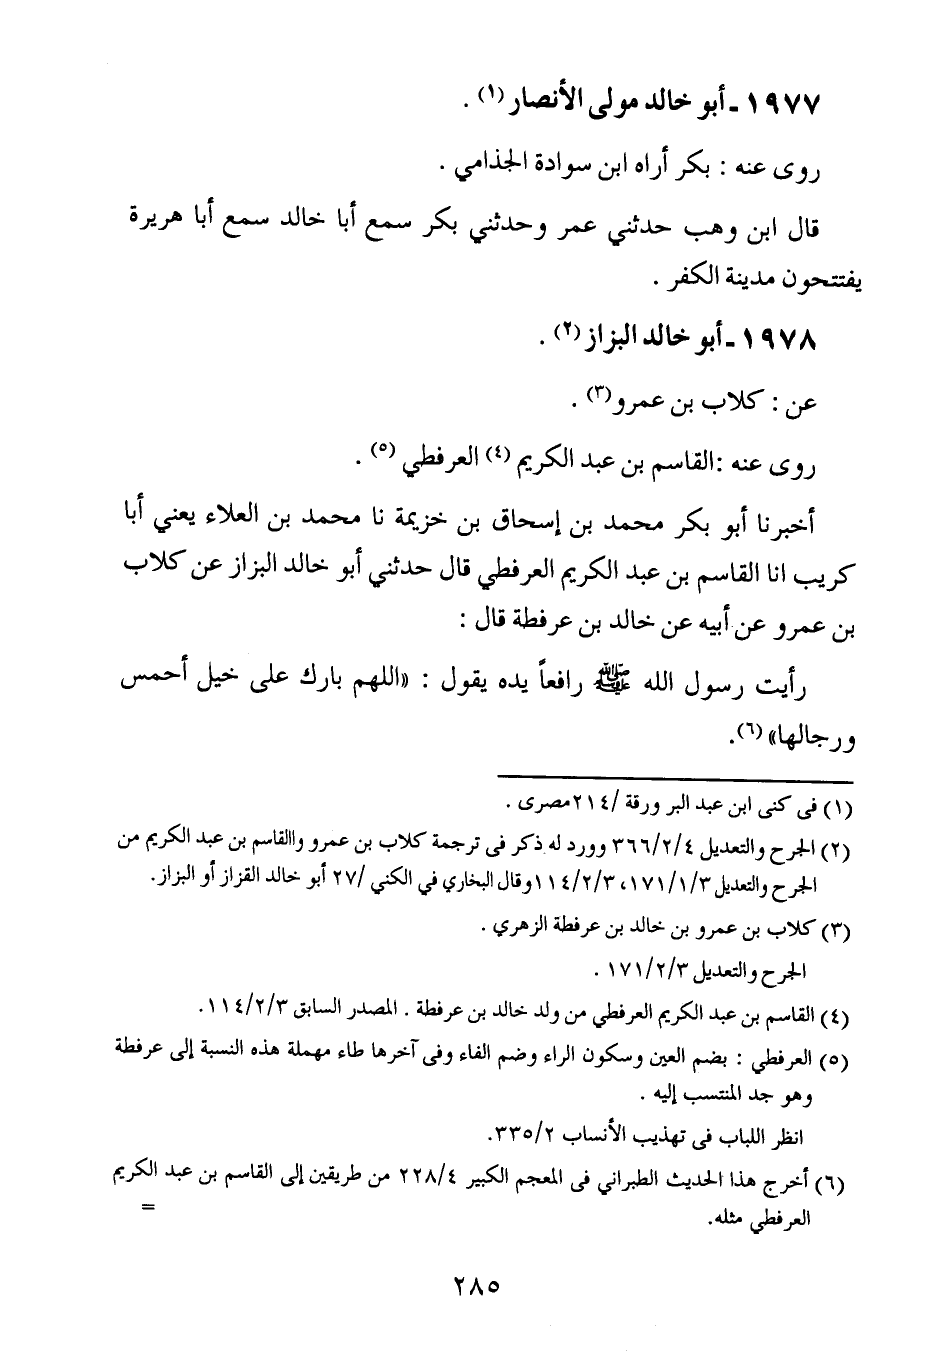 ١٩٧٧ ـ أبو خالد مولى الأنصار (١) .
روى عنه : بكر أراه ابن سوادة الجذامي .
قال ابن وهب حدثني عمر وحدثني بكر سمع أبا خالد سمع أبا هريرة
يفتتحون مدينة الكفر .
١٩٧٨ ـ أبو خالد البزاز (٢) .
عن : كلاب بن عمرو(٣) .
روى عنه :القاسم بن عبد الكريم (٤) العرفطي (٥) .
أخبرنا أبو بكر محمد بن إسحاق بن خزيمة نا محمد بن العلاء يعني أبا
كريب انا القاسم بن عبد الكريم العرفطي قال حدثني أبو خالد البزاز عن كلاب
بن عمرو عن أبيه عن خالد بن عرفطة قال :
رأيت رسول الله ﷺ رافعاً يده يقول : «اللهم بارك على خيل أحمس
ورجالها» (٦).
(١) فى كنى ابن عبد البر ورقة /٢١٤مصرى .
(٢) الجرح والتعديل ٣٦٦/٢/٤ وورد له ذكر فى ترجمة كلاب بن عمرو واالقاسم بن عبد الكريم من
الجرح والتعديل ١٧١/١/٣، ١١٤/٢/٣وقال البخاري في الكني /٢٧ أبو خالد القزاز أو البزاز.
(٣) كلاب بن عمرو بن خالد بن عرفطة الزهري .
الجرح والتعديل ١٧١/٢/٣ .
(٤) القاسم بن عبد الكريم العرفطي من ولد خالد بن عرفطة . المصدر السابق ١١٤/٢/٣.
(٥) العرفطي : بضم العين وسكون الراء وضم الفاء وفى آخرها طاء مهملة هذه النسبة إلى عرفطة
وهو جد المنتسب إليه .
انظر اللباب فى تهذيب الأنساب ٣٣٥/٢.
(٦) أخرج هذا الحديث الطبراني فى المعجم الكبير ٢٢٨/٤ من طريقين إلى القاسم بن عبد الكريم
العرفطي مثله. =
٢٨٥